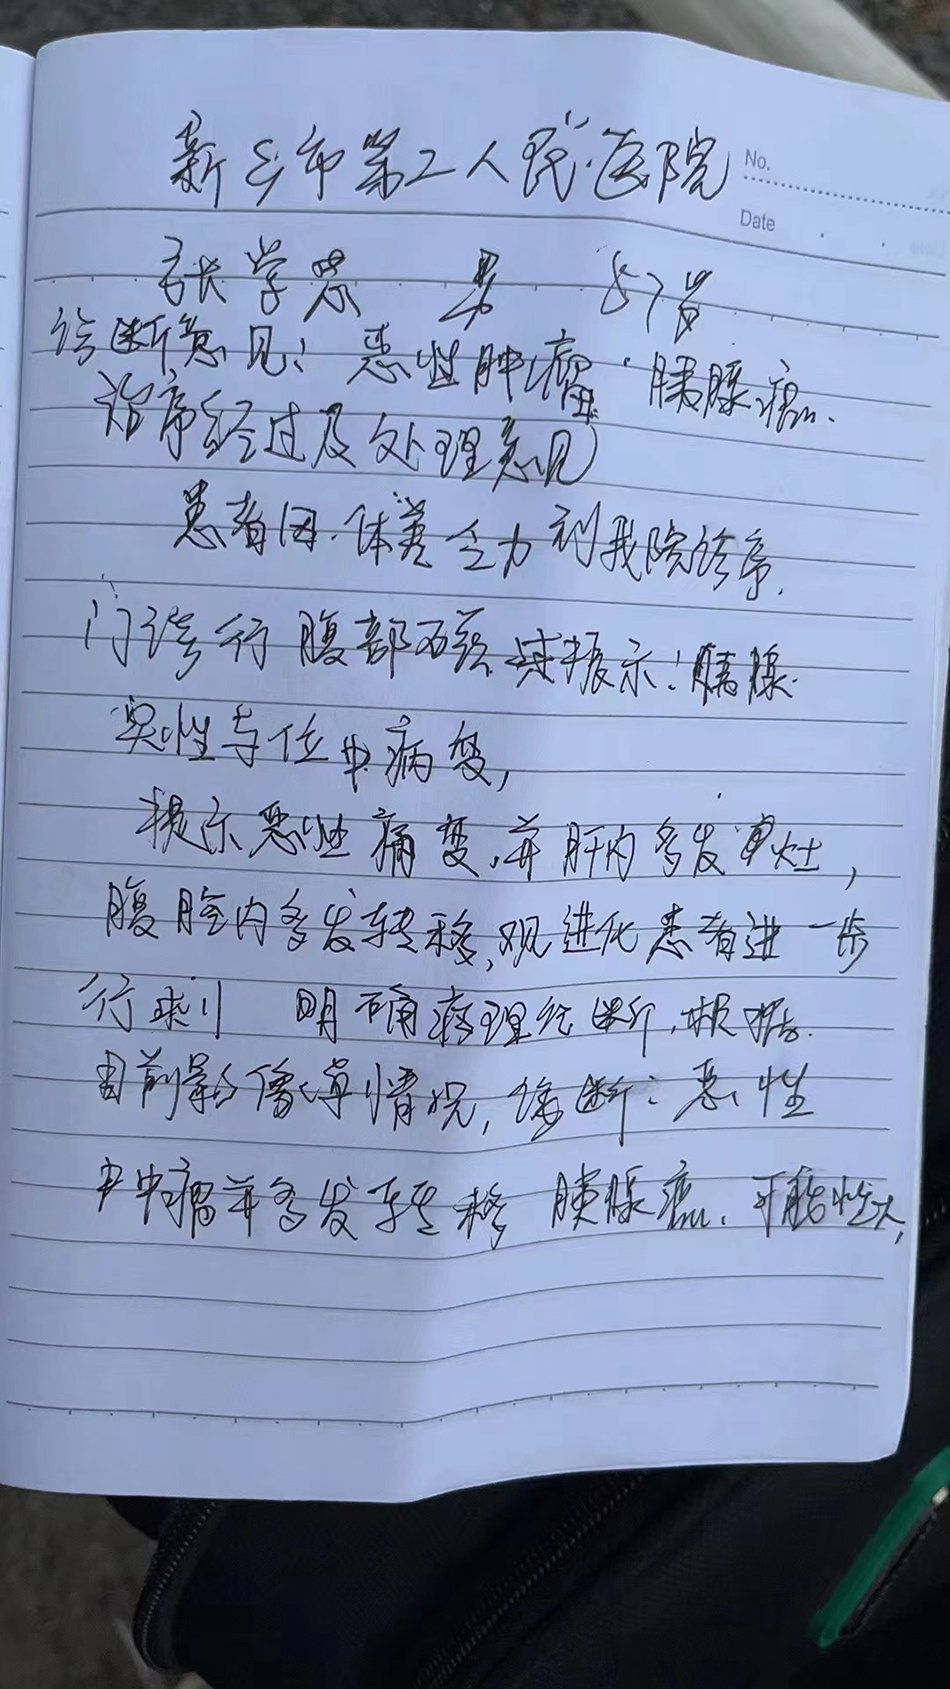 新乡市第二人民医院
No.
Date
张学思 男 57岁
诊断意见: 恶性肿瘤 胰腺癌.
治疗经过及处理意见
患者因.体差乏力到我院诊疗.
门诊行腹部 示: 胰腺
实性占位 病变,
提示恶性病变,并肝内多发 灶,
腹腔内多发转移, 患者进一步
行 明确病理诊断,根据.
目前影像 情况, 诊断: 恶性
肿瘤并多发转移 胰腺癌. 可能性大,